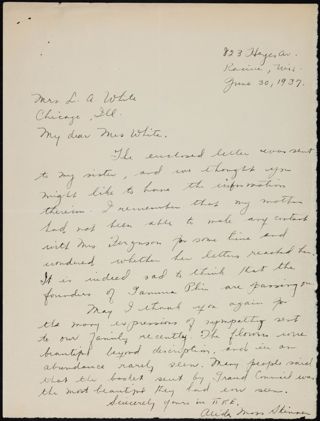 823 Hayes Av.
Racine, Wis.
June 30, 1937.
Mrs L. A White
Chicago, Ill.
My dear Mrs White.
The enclosed letter was sent
to my sister, and we thought you
might like to have the information
therein. I remember that my mother
had not been able to make any contact
with Mrs Ferguson for some time and
wondered whether her letters reached her.
It is indeed sad to think that the
founders of Gamma Phi are passing on.
May I thank you again for
the many expressions of sympathy sent
to our family recently. The flowers were
beautiful beyond description, and in an
abundance rarely seen. Many people said
that the basket sent by Grand Council was
the most beautiful they had ever seen.
Sincerely yours in
Moss Skinner